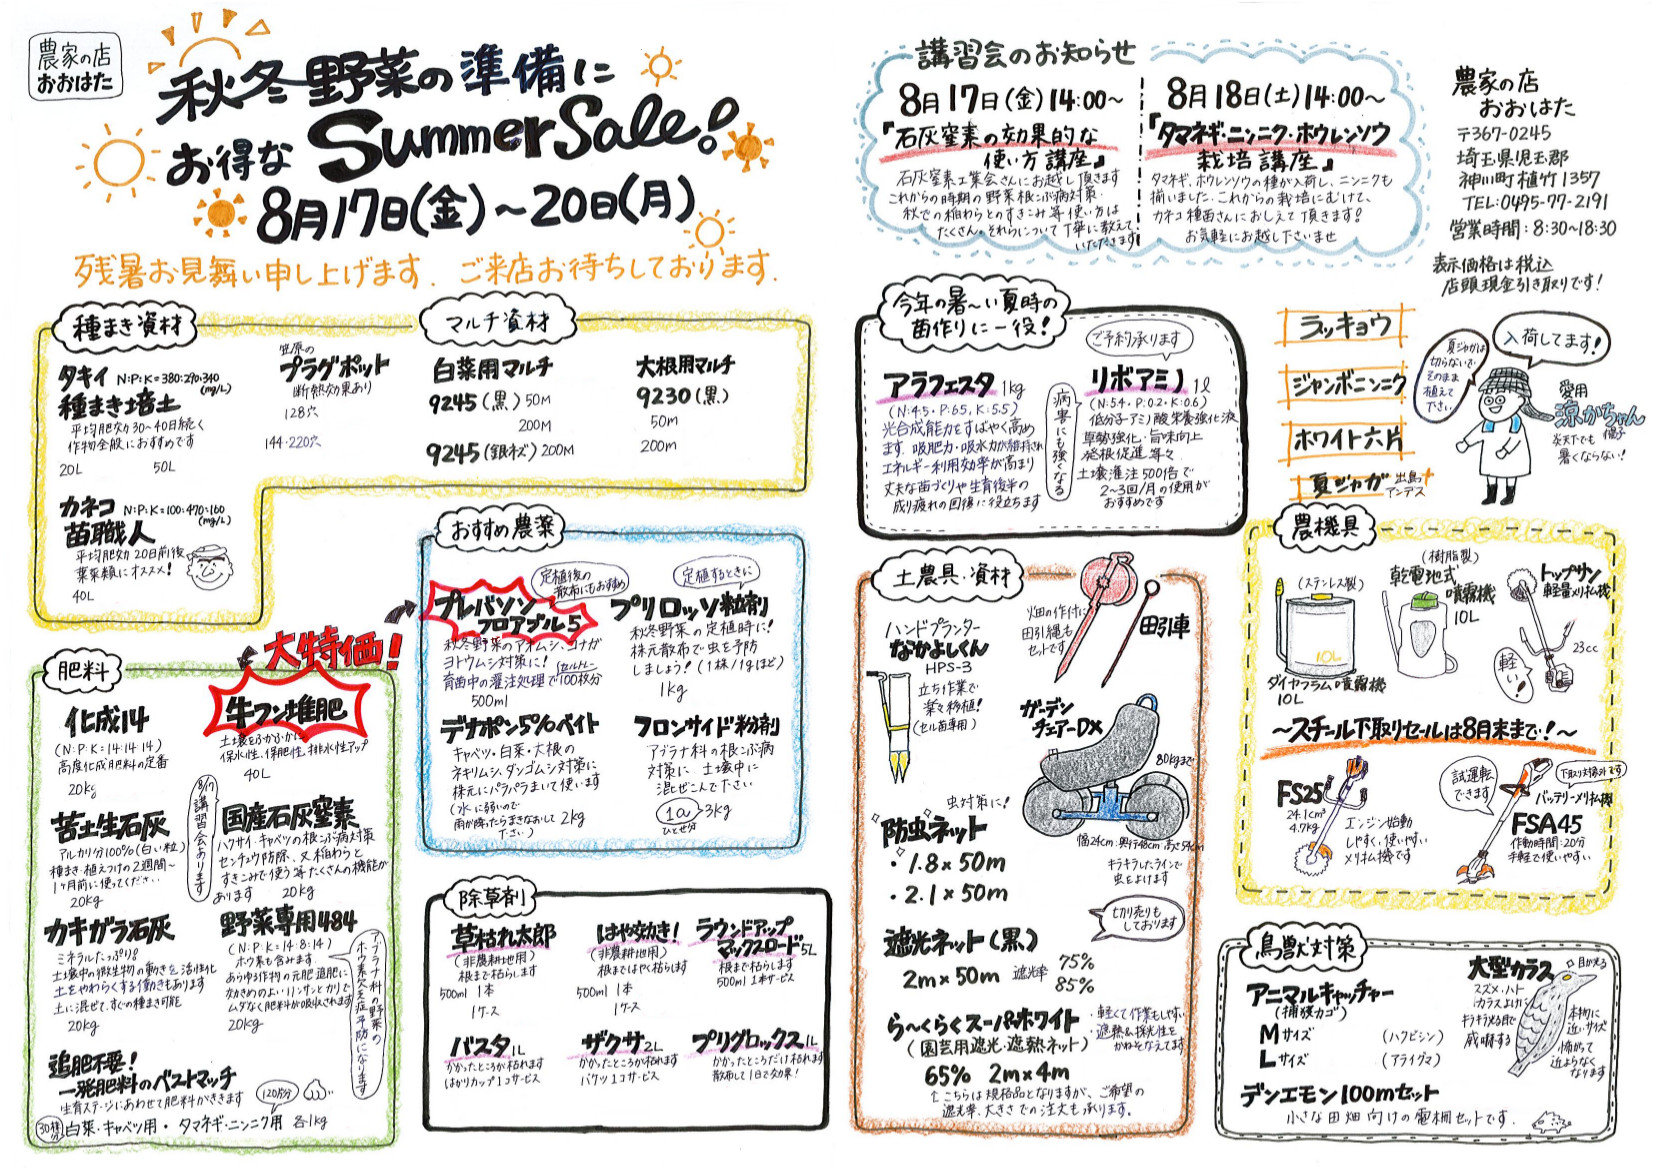 農家の店
おおはた
秋冬野菜の準備に
お得な Summer Sale!
8月17日(金)～20日(月)
残暑お見舞い申し上げます. ご来店お待ちしております.
種まき資材
タキイ N:P:K=380:290:340
(mg/L)
種まき培土
平均肥効30～40日続く
作物全般におすすめです
20L 50L
笠原の
プラグポット
断熱効果あり
128穴
144・220穴
カネコ N:P:K=100:470:160
(mg/L)
苗職人
平均肥効20日前後
葉菜類にオススメ!
40L
マルチ資材
白菜用マルチ
9245(黒) 50M
200M
9245(銀ネズ) 200M
大根用マルチ
9230(黒)
50m
200m
大特価!
肥料
化成14
(N:P:K=14:14:14)
高度化成肥料の定番
20kg
牛フン堆肥
土壌をふかふかに
保水性、保肥性、排水性アップ
40L
苦土生石灰
アルカリ分100%(白い粒)
種まき・植えつけの2週間～
1ヶ月前に使ってください
20kg
8/17
講習会あります
国産石灰窒素
ハクサイ・キャベツの根こぶ病対策
センチュウ防除、又稲わらと
すきこみで使う等たくさんの機能が
あります 20kg
カキガラ石灰
ミネラルたっぷり!
土壌中の微生物の動きを活性化
土をやわらくする働きもあります
土に混ぜて、すぐの種まき可能
20kg
野菜専用484
(N:P:K=14:8:14)
ホウ素も含みます
あらゆる作物の元肥追肥に
効きめのよいリンサンとカリで
ムダなく肥料が吸収されます
20kg
アブラナ科の野菜の
ホウ素欠乏症予防になります
追肥不要!
一発肥料のベストマッチ
生育ステージにあわせて肥料がききます
120株分
30株分
白菜・キャベツ用・タマネギ・ニンニク用 各1kg
おすすめ農薬
定植後の
散布にもお勧め
プレバソン
フロアブル5
秋冬野菜のアオムシ、コナガ
ヨトウムシ対策に!
セルトレー
育苗中の灌注処理で100枚分
500ml
定植するときに
プリロッソ粒剤
秋冬野菜の定植時に!
株元散布で虫を予防
しましょう!(1株/1gほど)
1kg
デナポン5%ベイト
キャベツ・白菜・大根の
ネキリムシ、ダンゴムシ対策に
株元にパラパラまいて使います
(水に弱いので
雨が降ったらまきなおして
下さい) 2kg
フロンサイド粉剤
アブラナ科の根こぶ病
対策に 土壌中に
混ぜこんで下さい
1a
ひとせ分
3kg
除草剤
草枯れ太郎
(非農耕地用)
根まで枯らします
500ml 1本
1ケース
はや効き!
(非農耕地用)
根まではやく枯らします
500ml 1本
1ケース
ラウンドアップ
マックスロード 5L
根まで枯らします
500ml 1本サービス
バスタ 1L
かかったところが枯れます
はかりカップ1コサービス
ザクサ 2L
かかったところが枯れます
バケツ1コサービス
プリグロックス 1L
かかったところだけ枯れます
散布して1日で効果!
講習会のお知らせ
8月17日(金)14:00～
『石灰窒素の効果的な
使い方講座』
石灰窒素工業会さんにお越し頂きます
これからの時期の野菜根こぶ病対策・
秋での稲わらとのすきこみ等使い方は
たくさん。それらについて丁寧に教えて
いただきます!
8月18日(土)14:00～
『タマネギ・ニンニク・ホウレンソウ
栽培講座』
タマネギ、ホウレンソウの種が入荷し、ニンニクも
揃いました。これからの栽培にむけて、
カネコ種苗さんにおしえて頂きます!
お気軽にお越し下さいませ
農家の店
おおはた
〒367-0245
埼玉県児玉郡
神川町植竹1357
TEL:0495-77-2191
営業時間:8:30～18:30
表示価格は税込
店頭現金引き取りです!
今年の暑～い夏時の
苗作りに一役!
ご予約承ります
アラフェスタ 1kg
(N:4.5・P:6.5、K:5.5)
光合成能力をすばやく高め
ます。吸肥力・吸水力が維持され
エネルギー利用効率が高まり
丈夫な苗づくりや生育後半の
成り疲れの回復に役立ちます
病害にも強くなる
リボアミノ 1ℓ
(N:5.4・P:0.2・K:0.6)
低分子アミノ酸栄養強化液
草勢強化・旨味向上
発根促進、等々
土壌灌注500倍で
2～3回/月の使用が
おすすめです
ラッキョウ
ジャンボニンニク
ホワイト六片
夏ジャガ 出島
アンデス
夏ジャガは
切らないで
そのまま
植えて
下さい
入荷してます!
愛用
涼かちゃん
帽子
炎天下でも
暑くならない!
土農具・資材
ハンドプランター
なかよしくん
HPS-3
立ち作業で
楽々移植!
(セル苗専用)
畑の作付に
田引縄も
セットです
田引車
ガーデン
チェアーDX
80kgまで
幅24cm:奥行48cm
虫対策に!
防虫ネット
・1.8×50m
・2.1×50m
キラキラしたラインで
虫をよけます
切り売りも
しております
遮光ネット(黒)
2m×50m 遮光率 75%
85%
ら～くらくスーパーホワイト
(園芸用遮光・遮熱ネット)
・軽くて作業もしやすい
・遮熱&採光性を
かねそなえてます
65% 2m×4m
↑こちらは規格品となりますが、ご希望の
遮光率、大きさでの注文も承ります。
農機具
(ステンレス製)
10L
ダイヤフラム噴霧機
10L
(樹脂製)
乾電池式
噴霧機
10L
トップサン
軽量刈払機
23cc
軽い!
～スチール下取りセールは8月末まで!～
FS25
24.1cm³
4.7kg
エンジン始動
しやすく、使いやすい
刈払機です
試運転
できます
下取り対象外です
バッテリー刈払機
FSA45
作動時間:20分
手軽で使いやすい
鳥獣対策
アニマルキャッチャー
(捕獲カゴ)
Mサイズ (ハクビシン)
Lサイズ (アライグマ)
大型カラス
スズメ・ハト
カラスよけに
キラキラ光る目で
威嚇する
目が光る
本物に
近いサイズ
怖がって
近よらなく
なります
デンエモン100mセット
小さな田畑向けの電柵セットです.